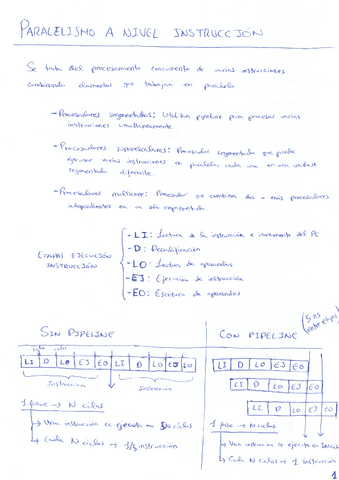 PARALELISMO A NIVEL INSTRUCCIÓN
Se trata del procesamiento concurrente de varias instrucciones
combinando elementos que trabajan en paralelo
- Procesadores segmentados: Utilizan pipeline para procesar varias
instrucciones simultáneamente
- Procesadores superescalares: Procesador segmentado que puede
ejecutar varias instrucciones en paralelo, cada una en una unidad
segmentada diferente.
- Procesadores multicore: Procesador que combina dos o más procesadores
independientes en un sólo
ETAPAS EJECUCIÓN
INSTRUCCIÓN
- LI: Lectura de la instrucción e incremento del PC
- D: Decodificación
- LO: Lectura de operandos
- EJ: Ejecución de instrucción
- EO: Escritura de operandos
SIN PIPELINE
LI D LO EJ EO LI D LO EJ EO
Instrucción Instrucción
1 fase → N ciclos
→ Una instrucción se ejecuta en 5N ciclos
→ Cada N ciclos → 1/5 instrucción
CON PIPELINE
LI D LO EJ EO
LI D LO EJ EO
LI D LO EJ EO
1 fase → N ciclos
→ Una instrucción se ejecuta en 5N ciclos
→ Cada N ciclos → 1 instrucción
1